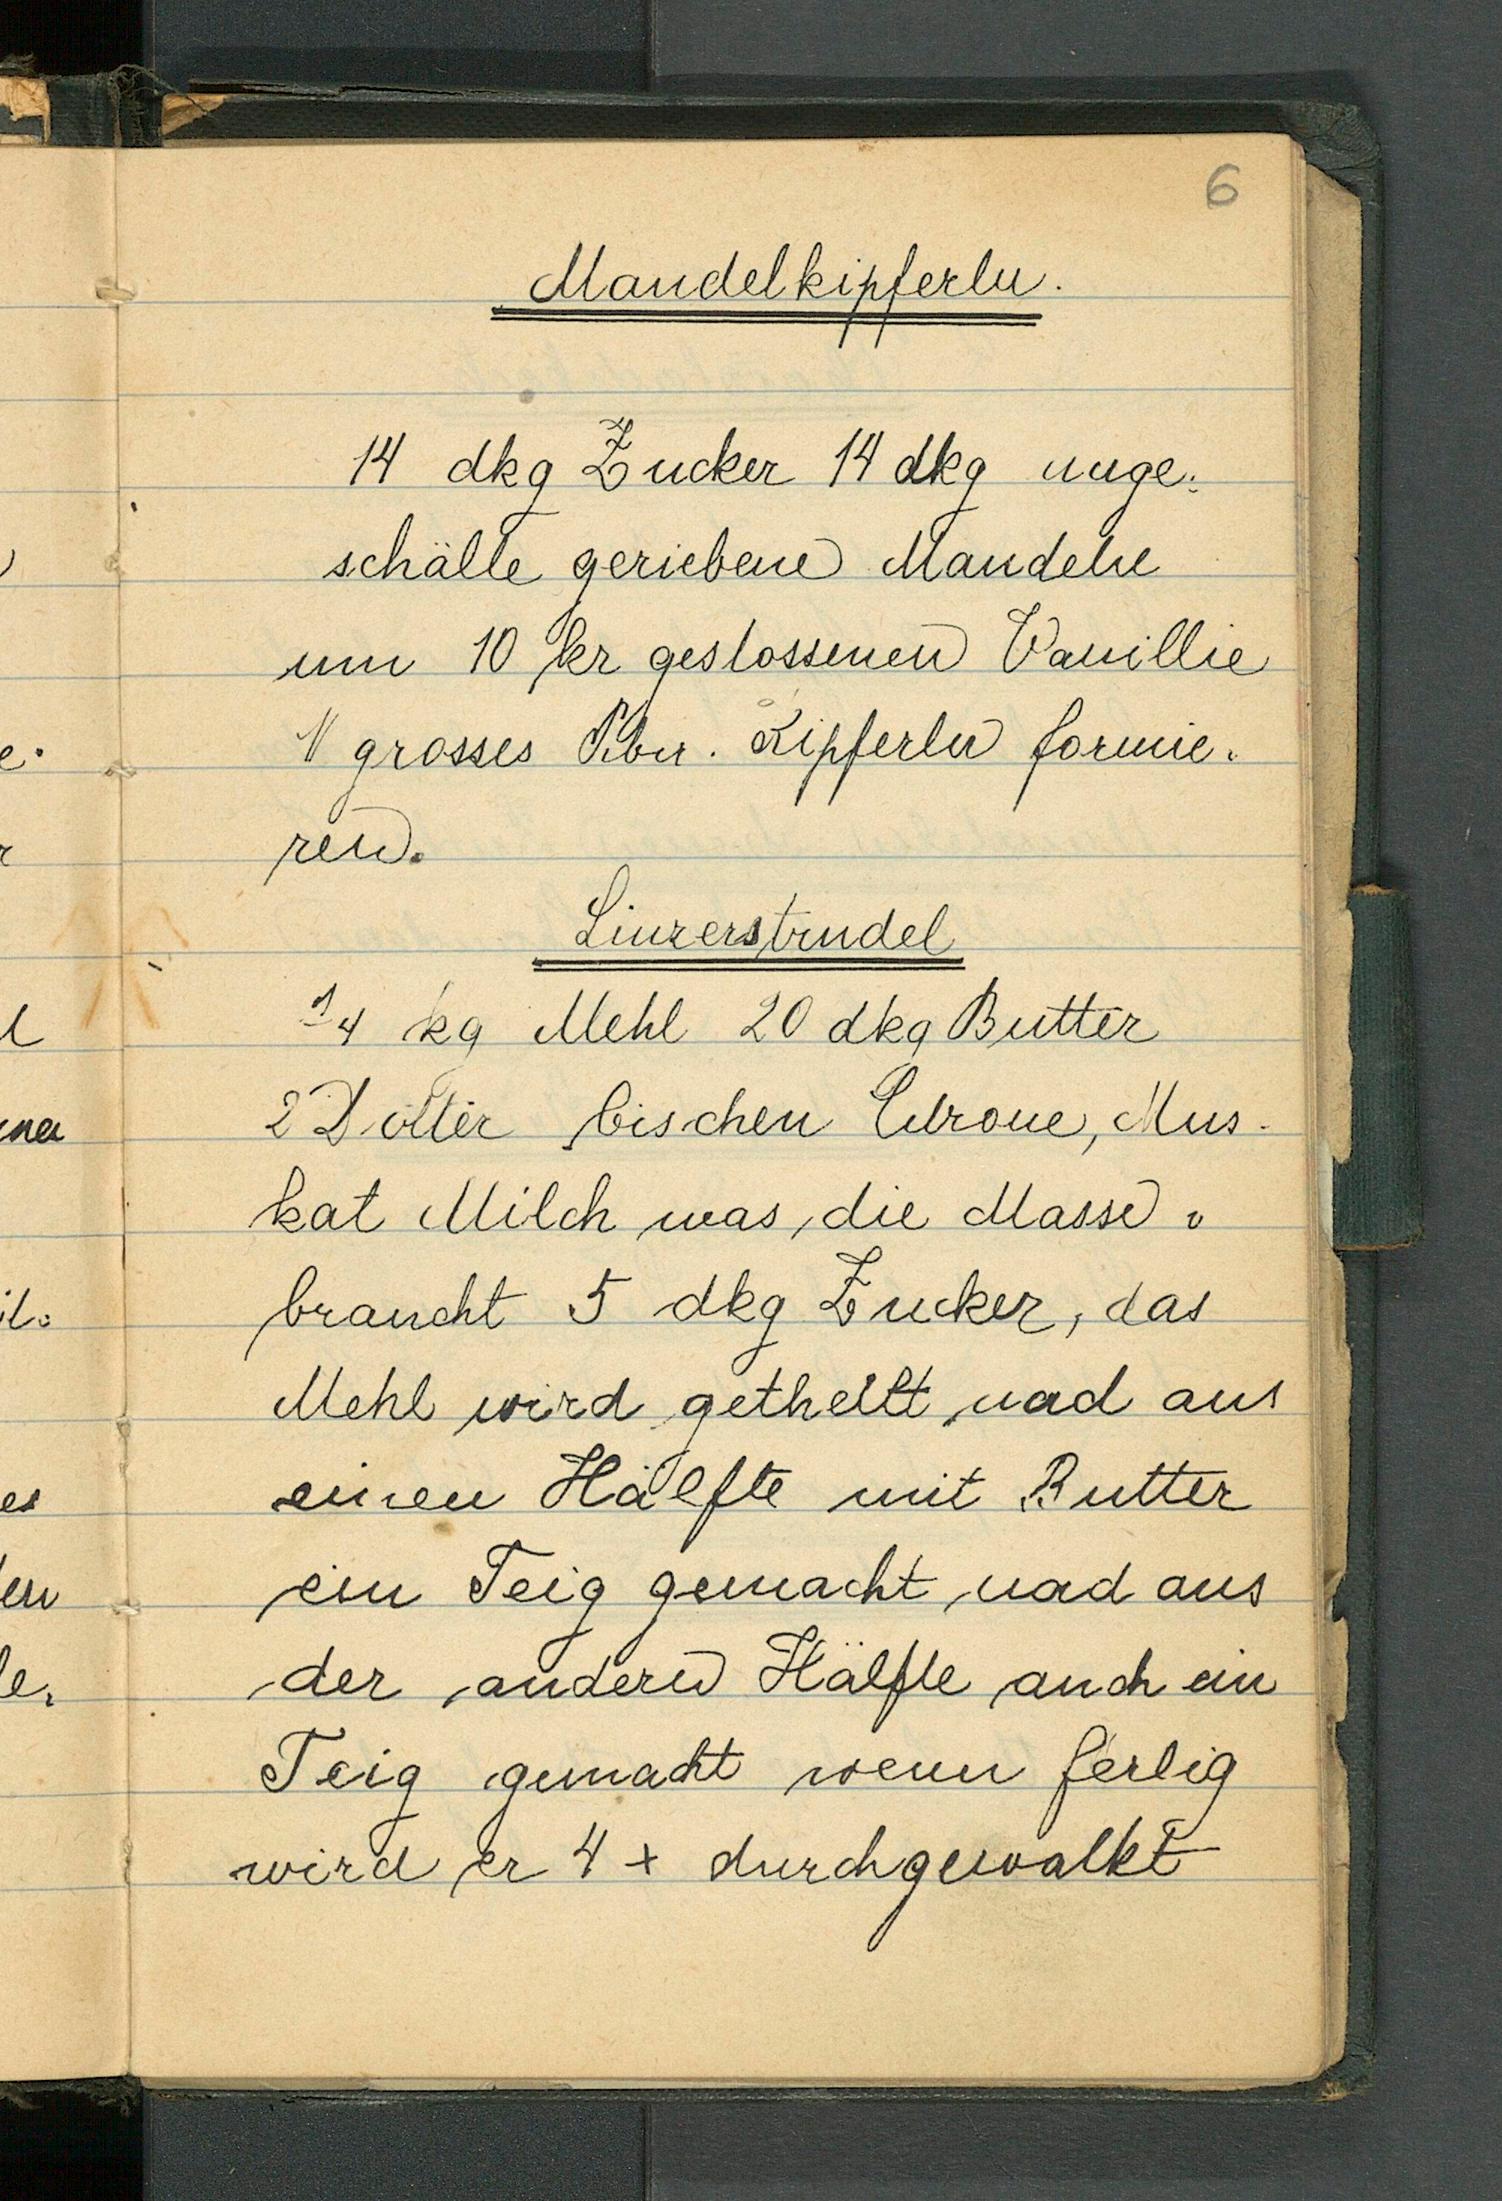 6
Mandelkipferln.
14 dkg Zucker 14 dkg unge-
schälte geriebene Mandeln
um 10 kr gestossenen Vanillie
1 grosses Kipferln formie-
ren.
Linzerstrudel
1/4 kg Mehl 20 dkg Butter
2 Dotter bischen Citrone, Mus-
kat Milch was die Masse
braucht 5 dkg Zucker, das
Mehl wird getheilt und aus
einen Hälfte mit Butter
ein Teig gemacht und aus
der andern Hälfte auch ein
Teig gemacht wenn fertig
wird er 4 x durchgewalkt